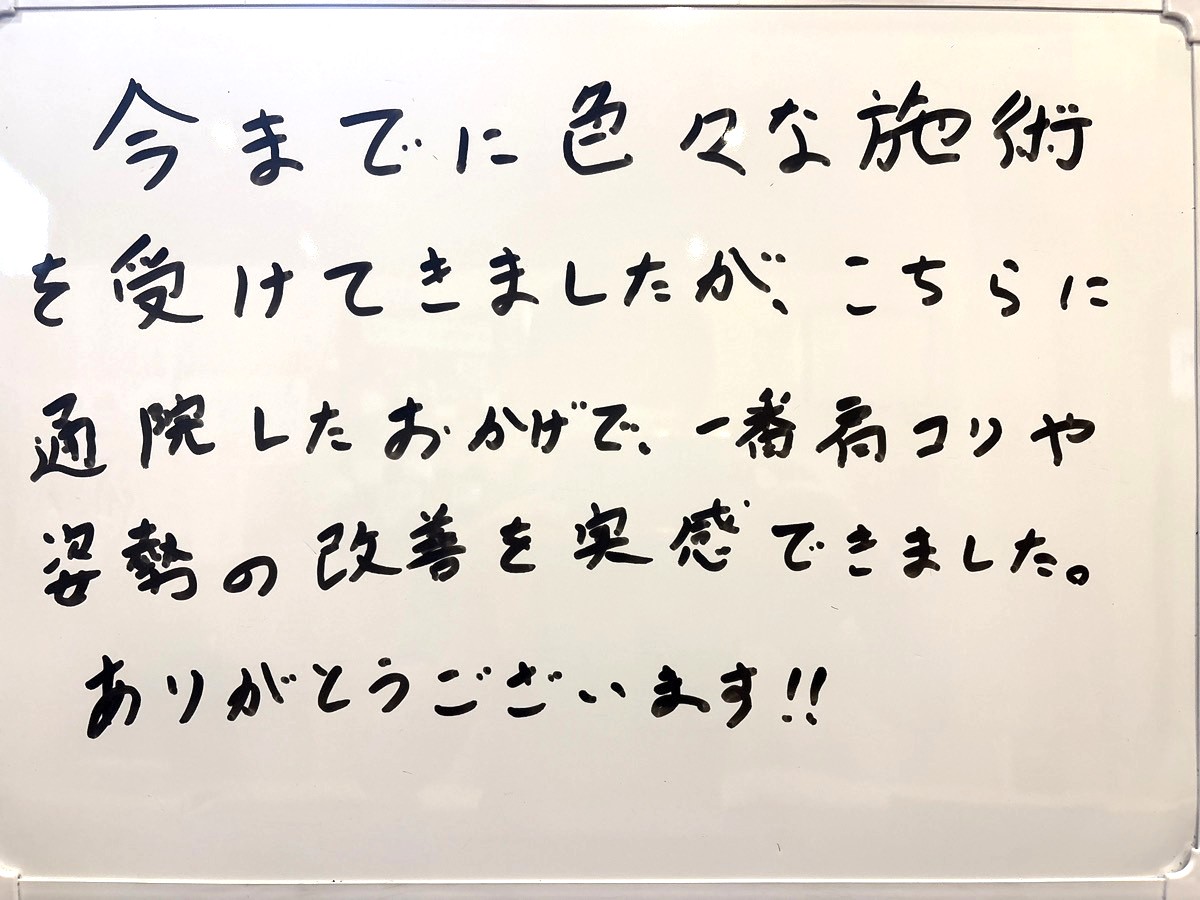 今までに色々な施術
を受けてきましたが、こちらに
通院したおかげで、一番肩コリや
姿勢の改善を実感できました。
ありがとうございます!!